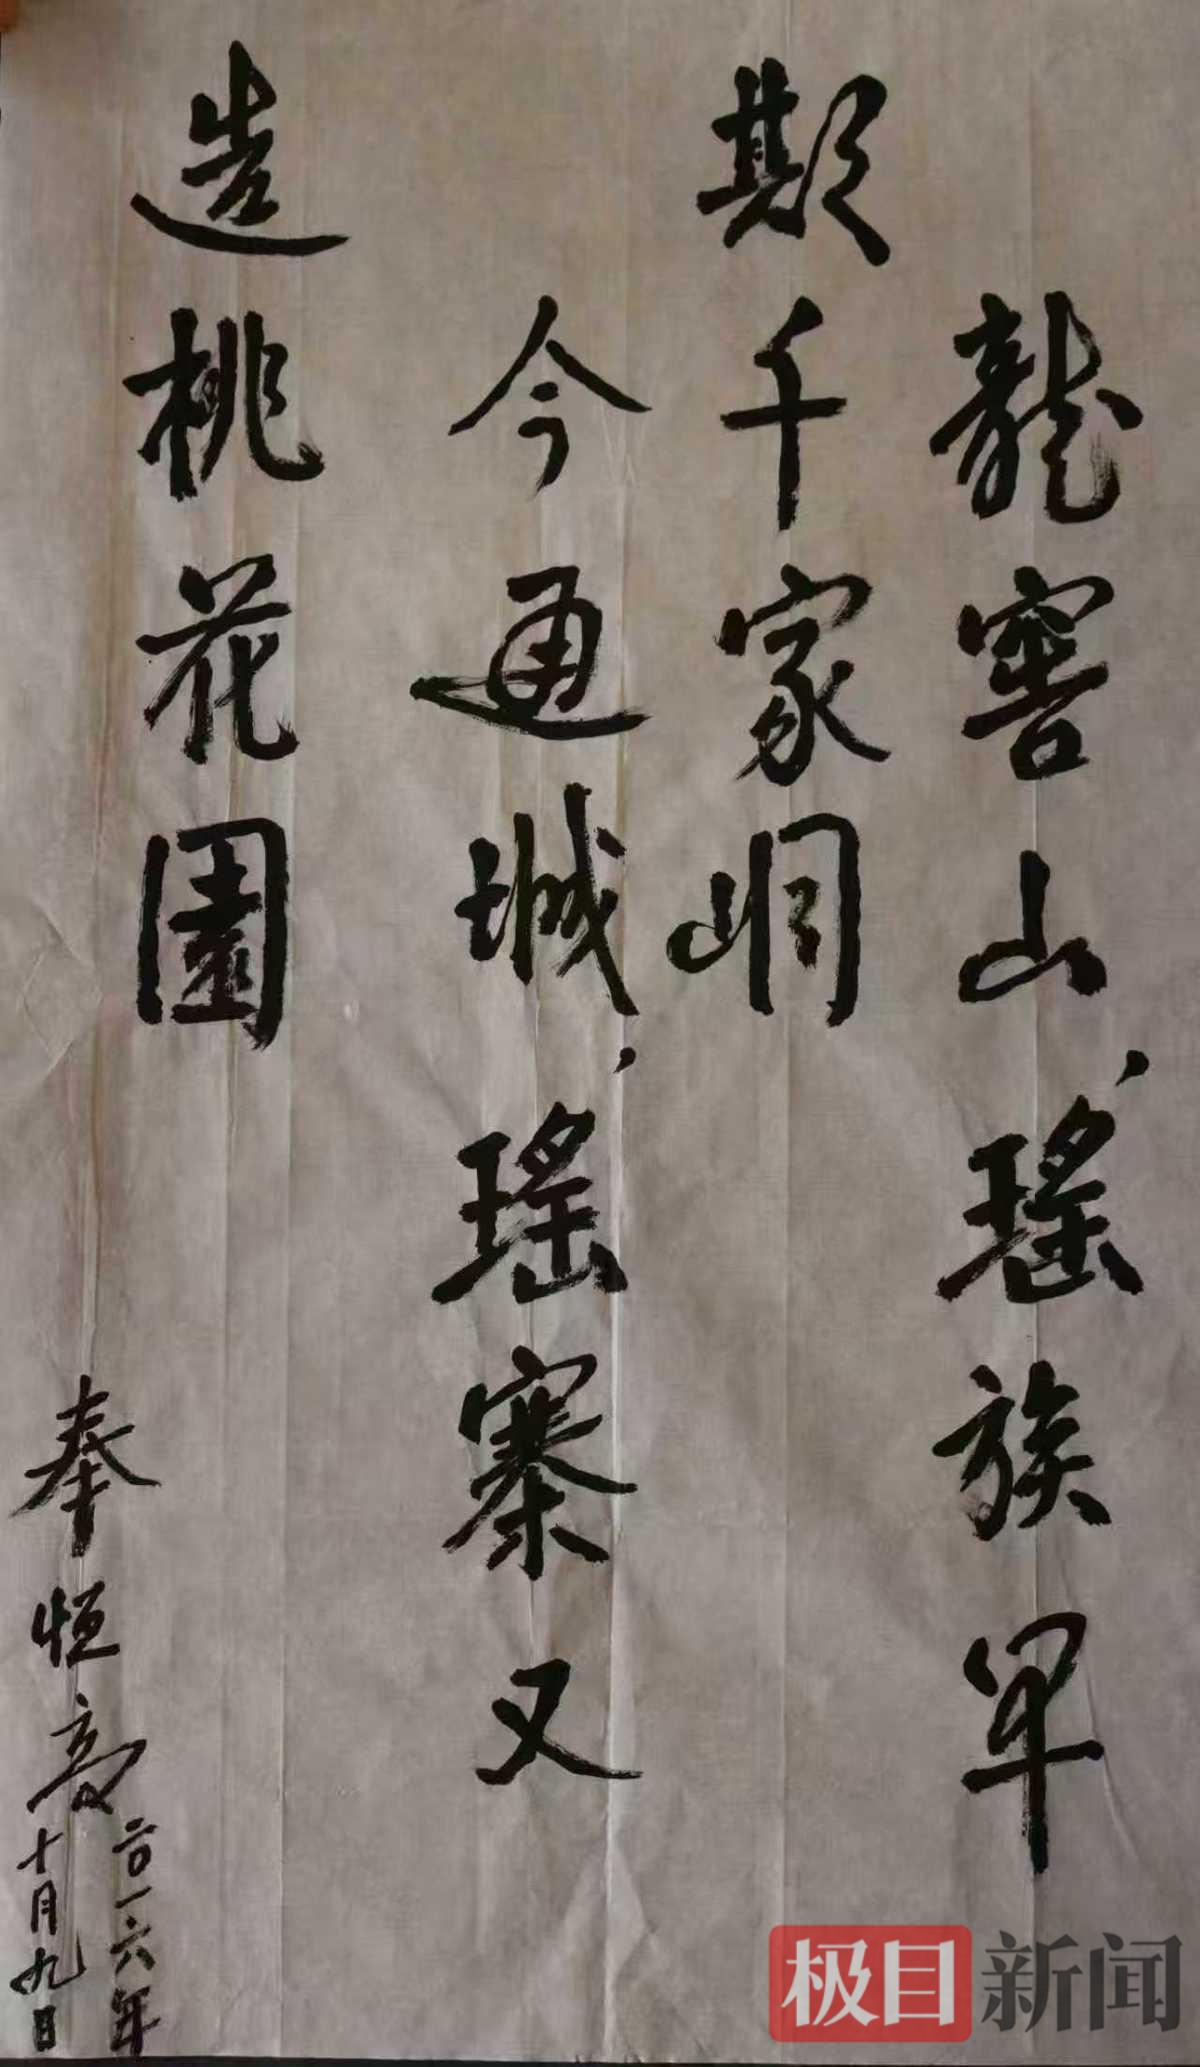 龍窖山，瑤族早
期千家峒
今通城，瑤寨又
造桃花園
奉恒高
二〇一六年
十月九日
极目新闻